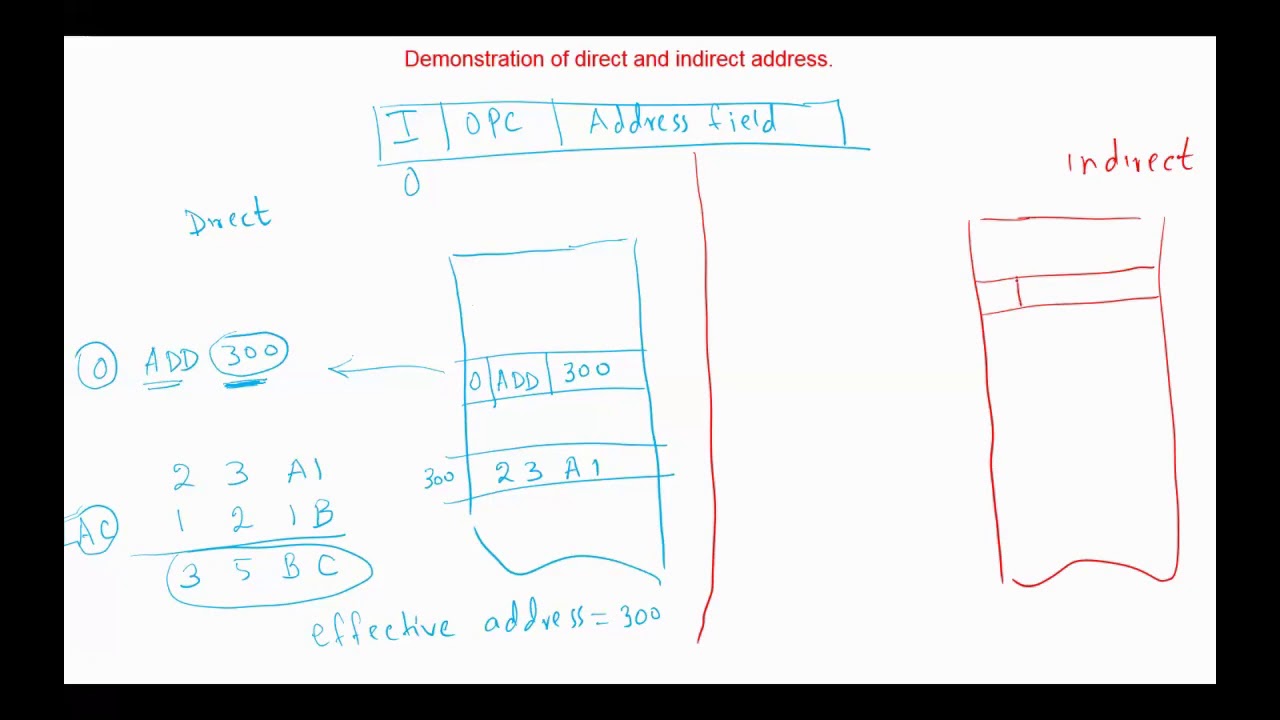 Demonstration of direct and indirect address.
I OPC Address field
0
Indirect
Direct
0 ADD 300
0 ADD 300
300 23 A1
2 3 A1
AC 1 2 1 B
3 5 B C
effective address = 300